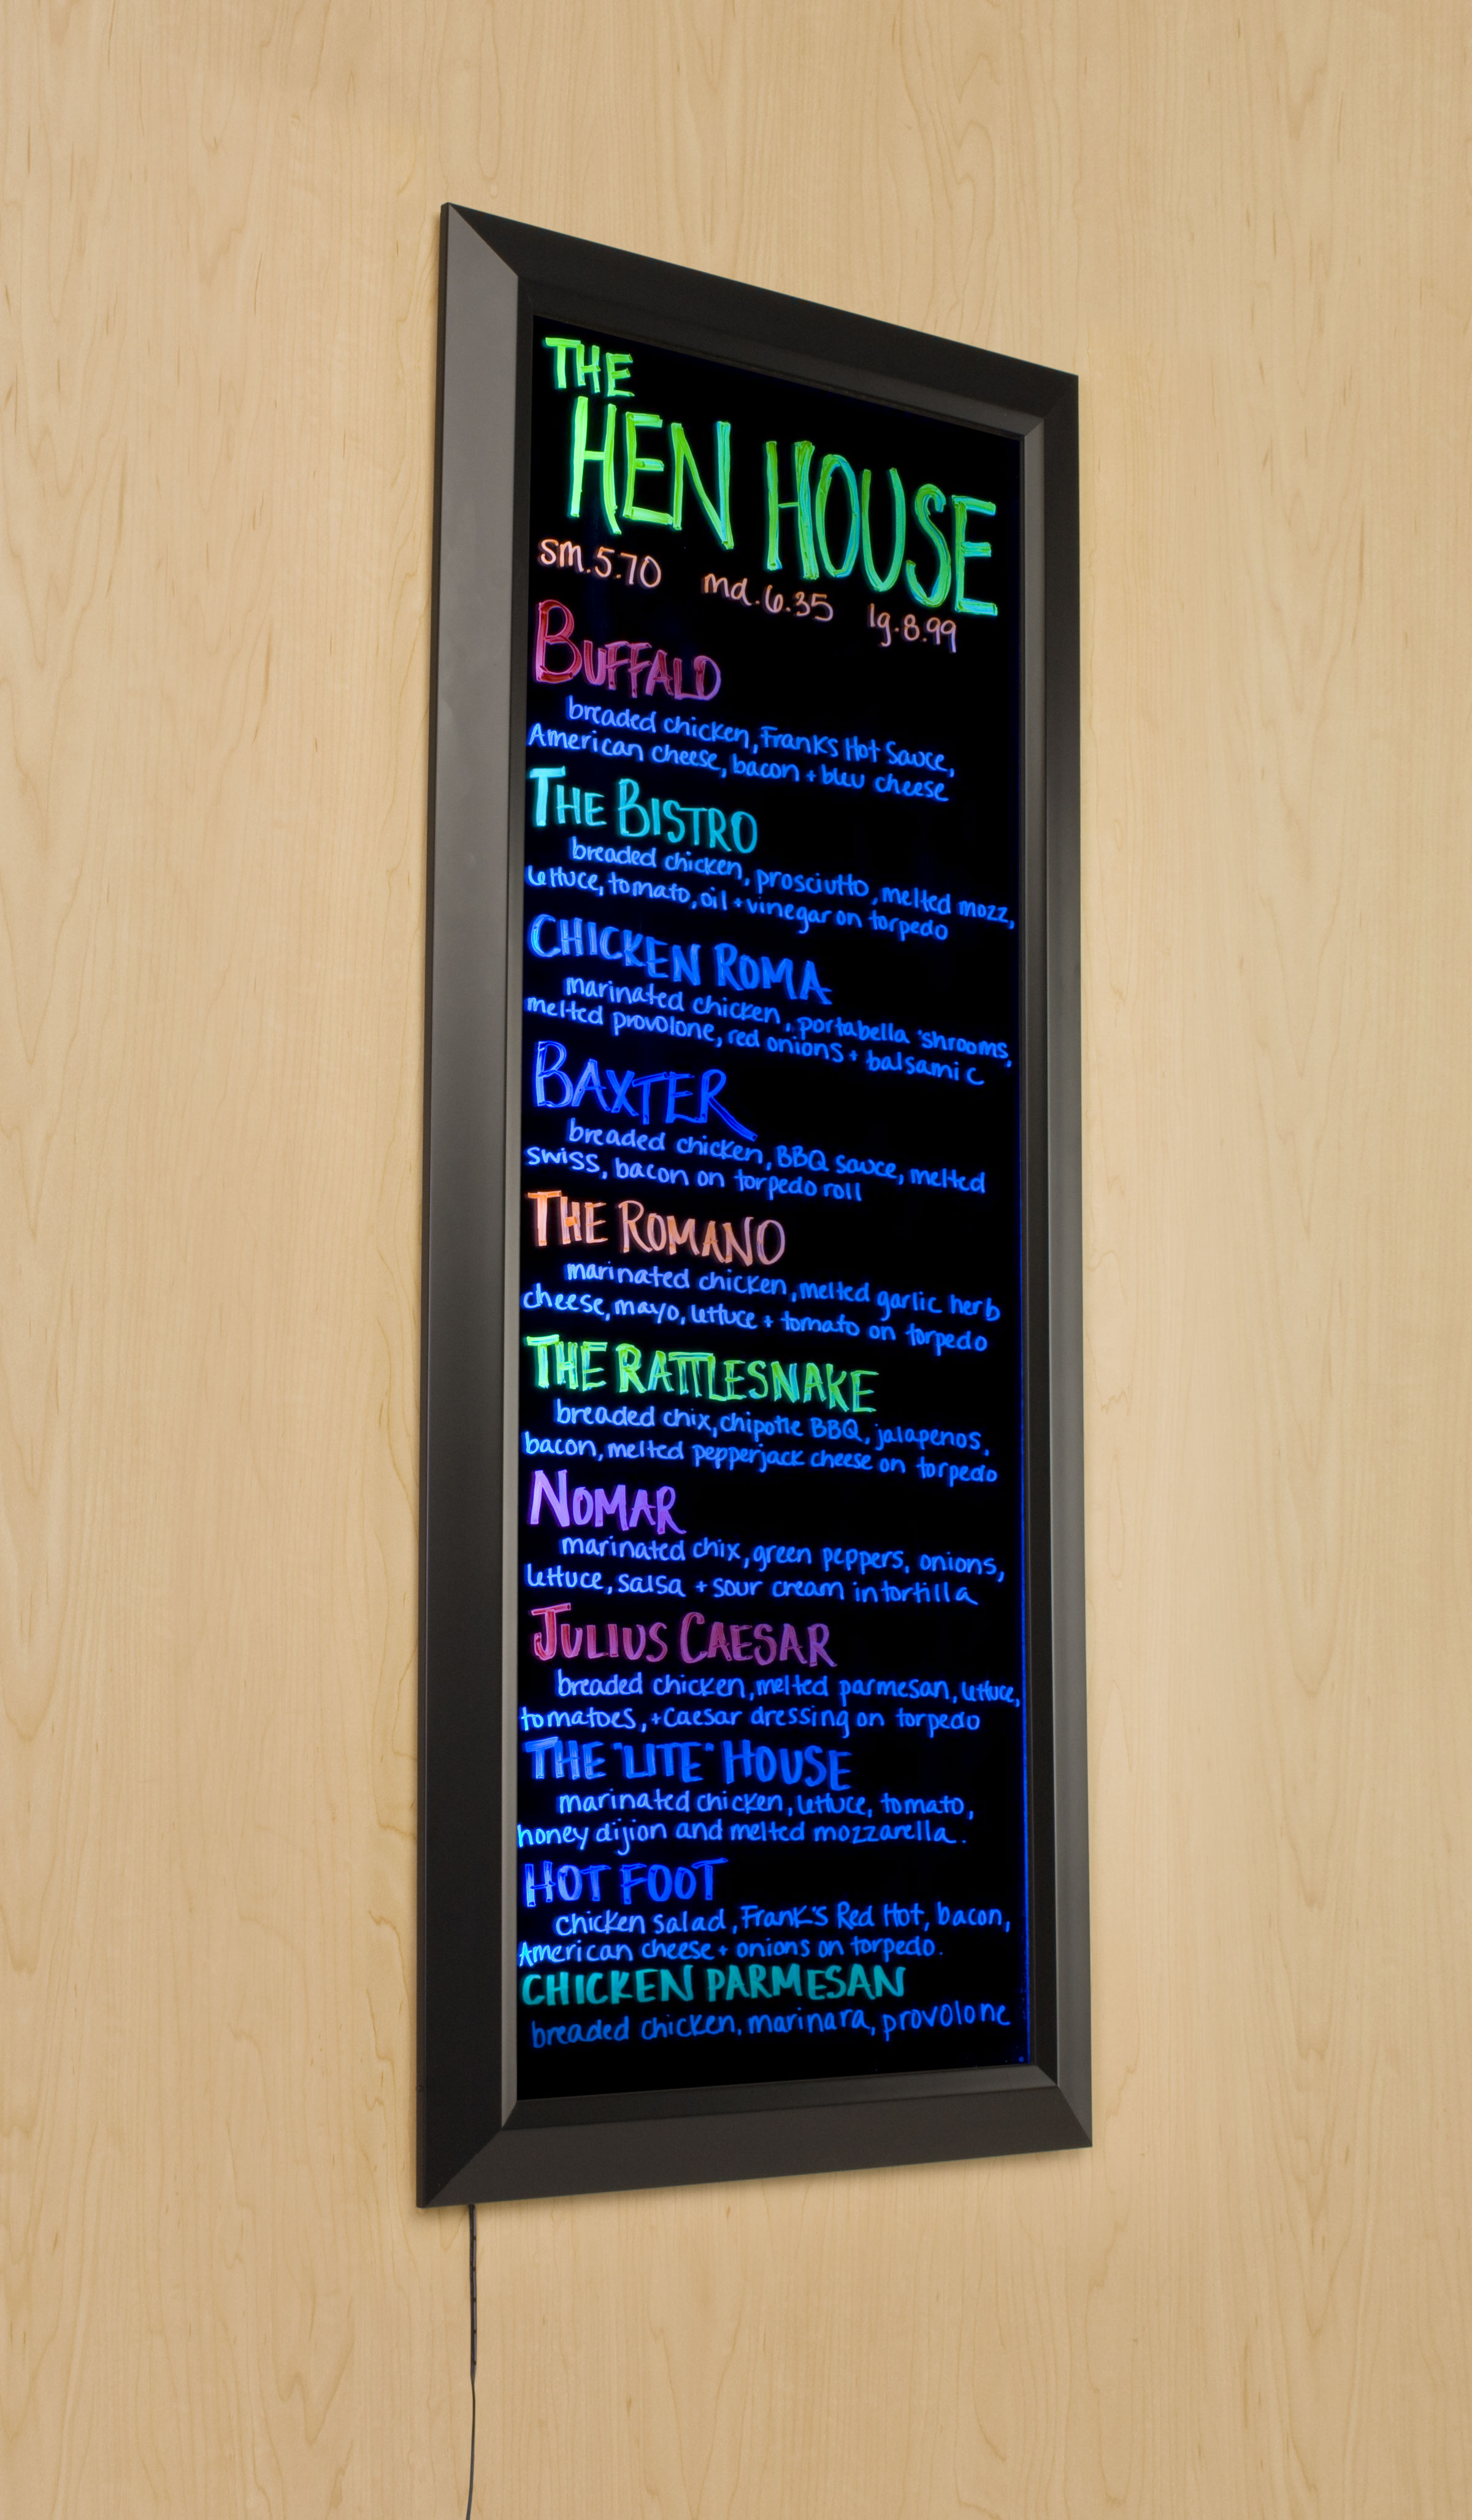 THE
HEN HOUSE
sm.5.70 md.6.35 lg.8.99
BUFFALO
breaded chicken, Franks Hot Sauce,
American cheese, bacon + bleu cheese
THE BISTRO
breaded chicken, prosciutto, melted mozz,
lettuce, tomato, oil + vinegar on torpedo
CHICKEN ROMA
marinated chicken, portabella 'shrooms,
melted provolone, red onions + balsamic
BAXTER
breaded chicken, BBQ sauce, melted
swiss, bacon on torpedo roll
THE ROMANO
marinated chicken, melted garlic herb
cheese, mayo, lettuce + tomato on torpedo
THE RATTLESNAKE
breaded chix, chipotle BBQ, jalapenos,
bacon, melted pepperjack cheese on torpedo
NOMAR
marinated chix, green peppers, onions,
lettuce, salsa + sour cream in tortilla
JULIUS CAESAR
breaded chicken, melted parmesan, lettuce,
tomatoes, + Caesar dressing on torpedo
THE "LITE" HOUSE
marinated chicken, lettuce, tomato,
honey dijion and melted mozzarella.
HOT FOOT
chicken salad, Frank's Red Hot, bacon,
American cheese + onions on torpedo.
CHICKEN PARMESAN
breaded chicken, marinara, provolone